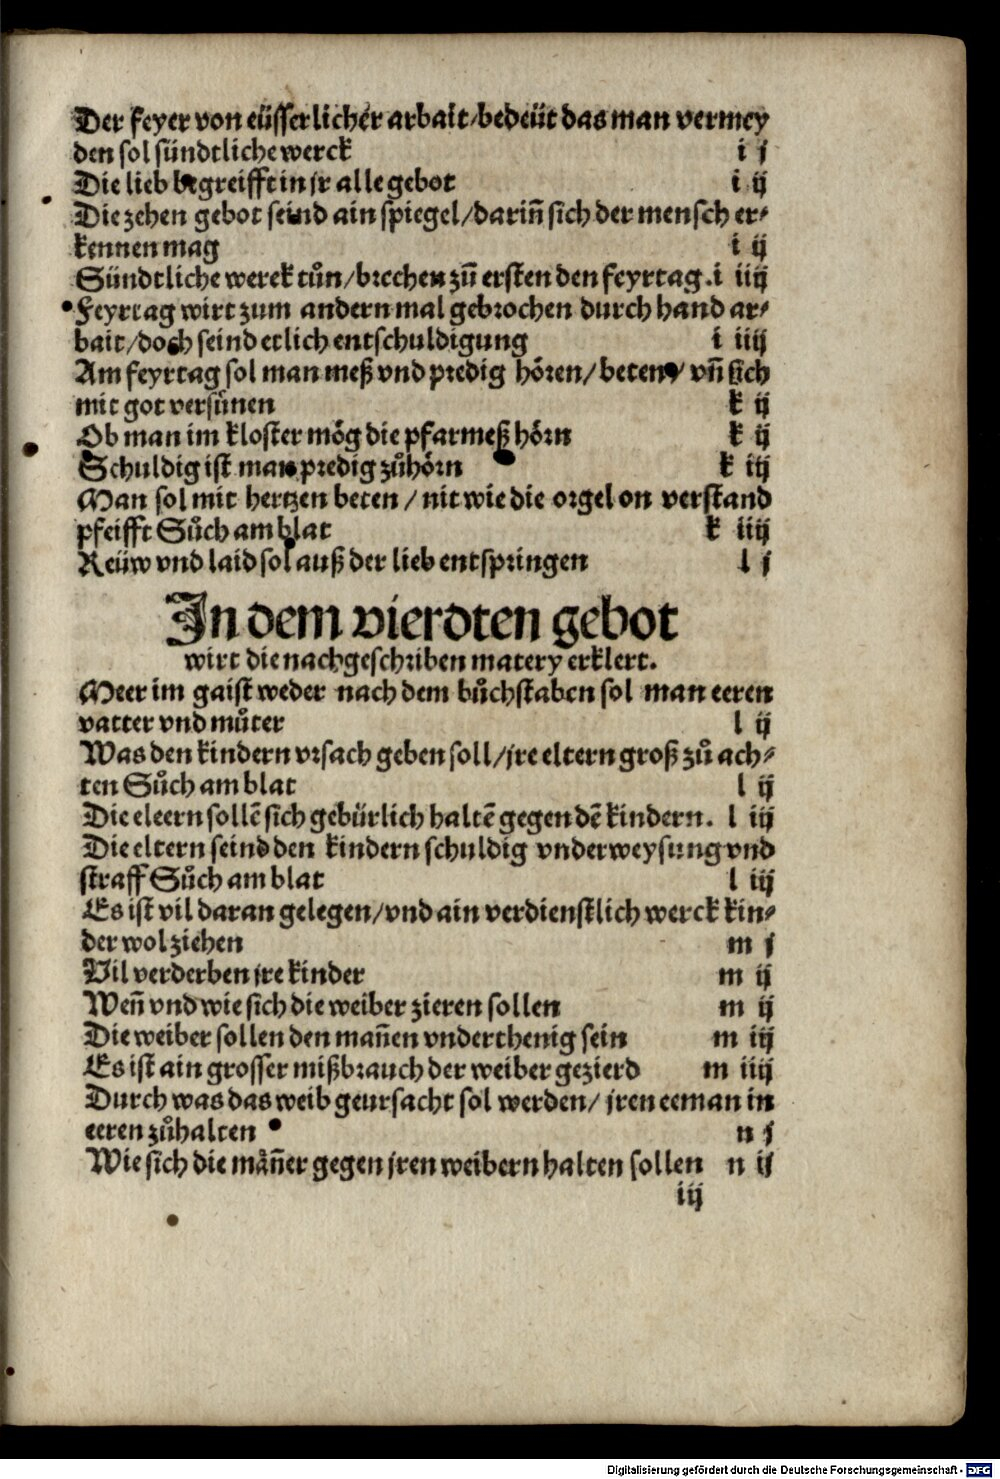 Der feyer von eüsserlicher arbait/bedeüt das man vermey
den sol sündtliche werck i j
Die lieb begreifft in jr alle gebot i ij
Die zehen gebot seind ain spiegel/dariñ sich der mensch er⸗
kennen mag i ij
Sündtliche werck tůn/brechen zů ersten den feyrtag. i iij
Feyrtag wirt zum andern mal gebrochen durch hand ar⸗
bait/doch seind etlich entschuldigung i iij
Am feyrtag sol man meß vnd predig hören/beten/vñ sich
mit got versünen k ij
Ob man im kloster mög die pfarmeß hörn k ij
Schuldig ist man predig zůhörn k iij
Man sol mit hertzen beten/nit wie die orgel on verstand
pfeifft Sůch am blat k iiij
Reüw vnd laid sol auß der lieb entspringen l j
In dem vierdten gebot
wirt die nachgeschriben matery erklert.
Meer im gaist weder nach dem bůchstaben sol man eeren
vatter vnd můter l ij
Was den kindern vrsach geben soll/jre eltern groß zů ach⸗
ten Sůch am blat l ij
Die eleern sollē sich gebürlich haltē gegen dē kindern. l iij
Die eltern seind den kindern schuldig vnderweysung vnd
straff Sůch am blat l iij
Es ist vil daran gelegen/vnd ain verdienstlich werck kin⸗
der wol ziehen m j
Vil verderben jre kinder m ij
Weñ vnd wie sich die weiber zieren sollen m ij
Die weiber sollen den mañen vnderthenig sein m iij
Es ist ain grosser mißbrauch der weiber gezierd m iiij
Durch was das weib geursacht sol werden/jren eeman in
eeren zůhalten n j
Wie sich die mäñer gegen jren weibern halten sollen n ij
iij
Digitalisierung gefördert durch die Deutsche Forschungsgemeinschaft - DFG